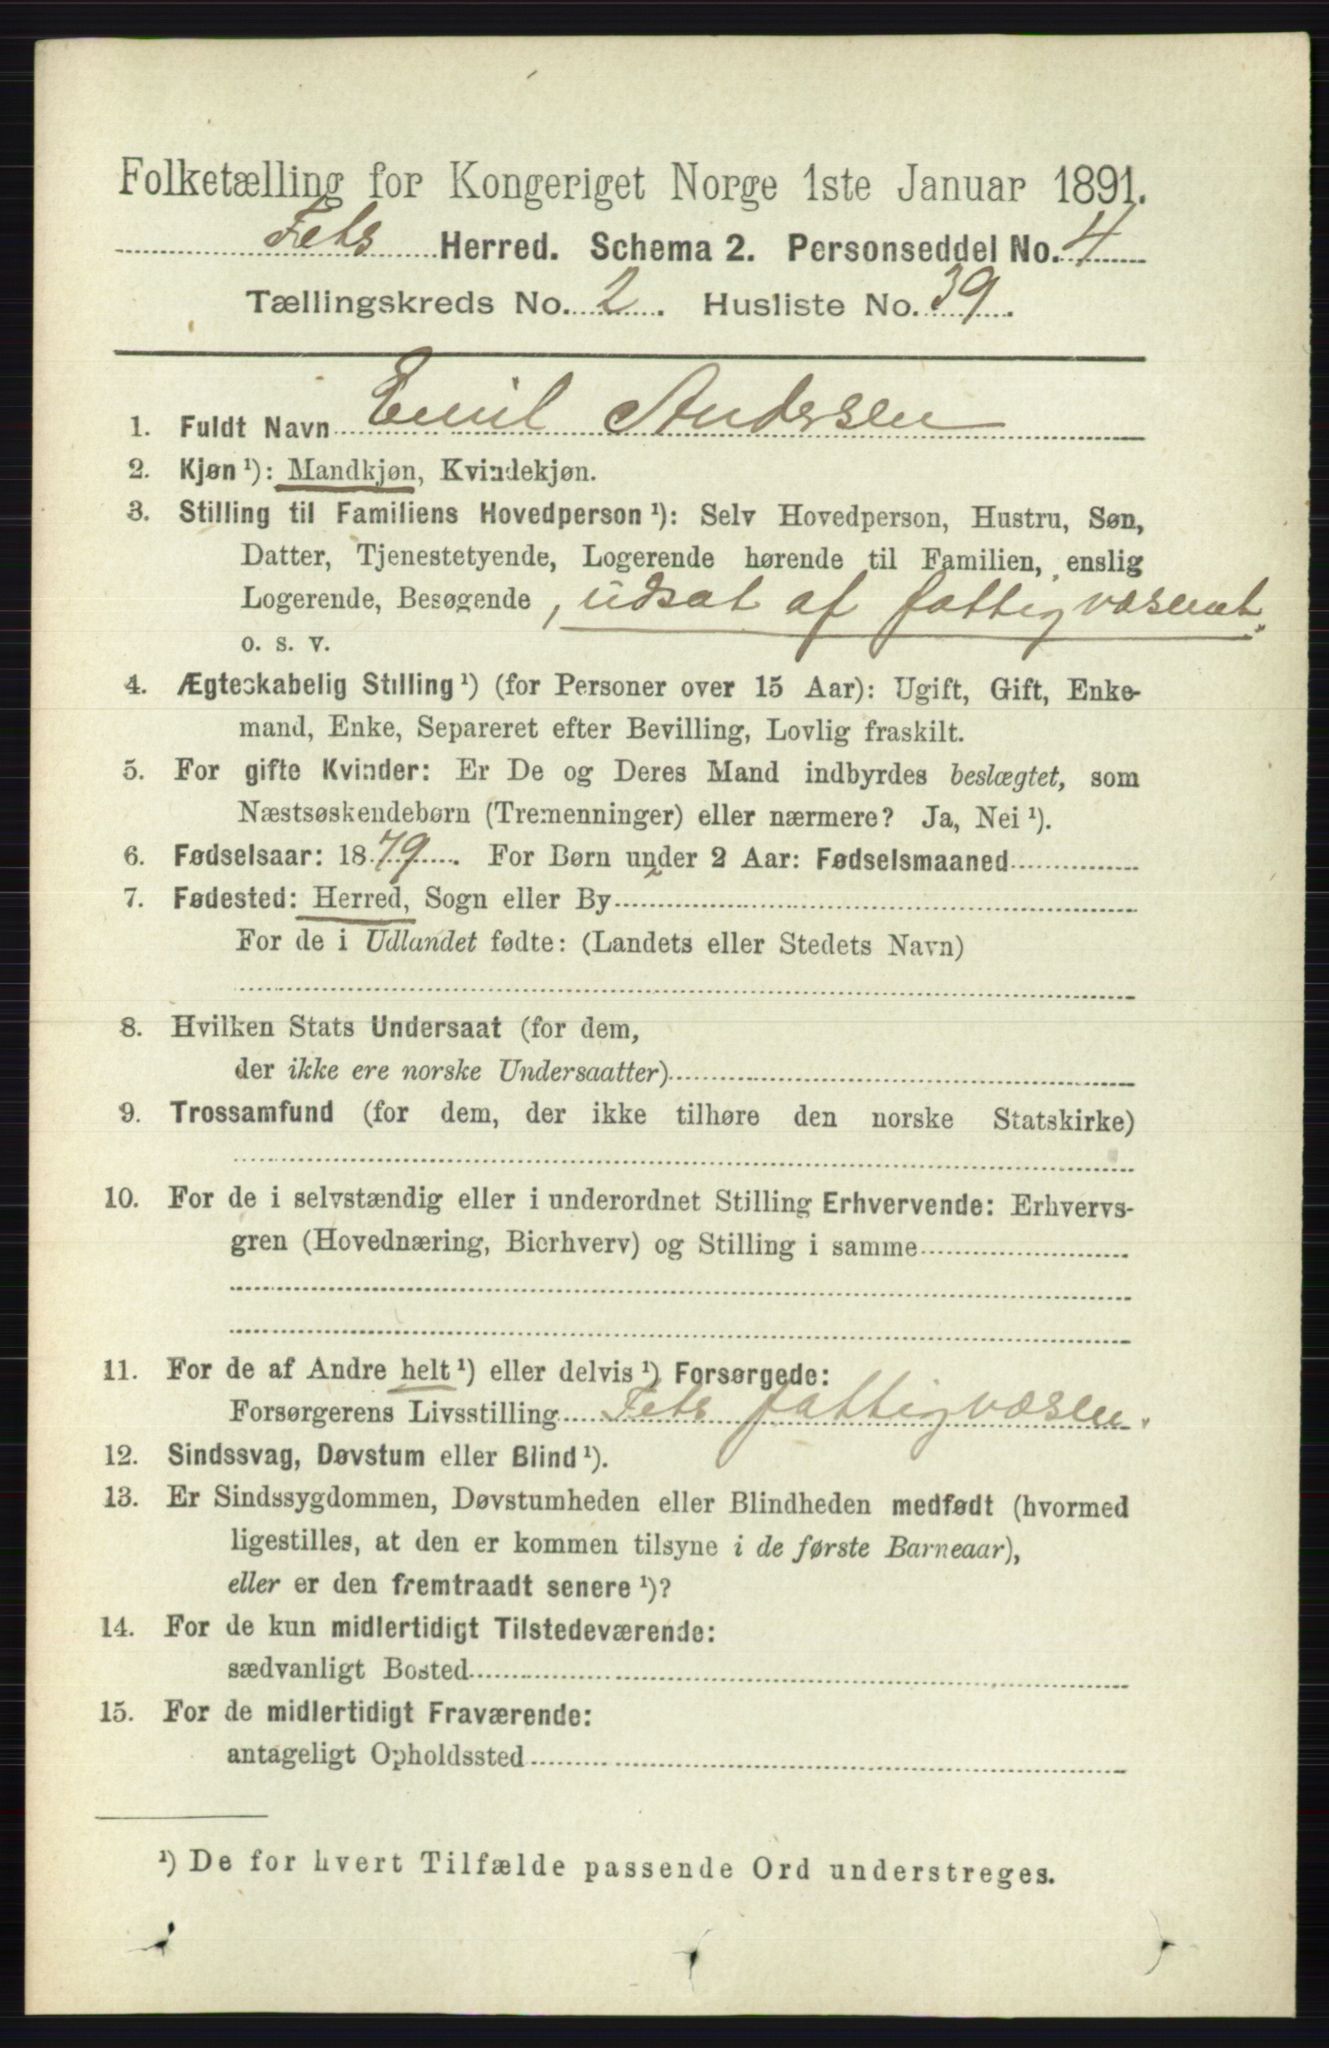 Folketælling for Kongeriget Norge 1ste Januar 1891.
Fets Herred. Schema 2. Personseddel No. 4
Tællingskreds No. 2. Husliste No. 39.
1. Fuldt Navn Emil Andersen
2. Kjøn ¹): Mandkjøn, Kvindekjøn.
3. Stilling til Familiens Hovedperson ¹): Selv Hovedperson, Hustru, Søn,
Datter, Tjenestetyende, Logerende hørende til Familien, enslig
Logerende, Besøgende, udsat af fattigvæsenet.
o. s. v.
4. Ægteskabelig Stilling ¹) (for Personer over 15 Aar): Ugift, Gift, Enke-
mand, Enke, Separeret efter Bevilling, Lovlig fraskilt.
5. For gifte Kvinder: Er De og Deres Mand indbyrdes beslægtet, som
Næstsøskendebørn (Tremenninger) eller nærmere? Ja, Nei ¹).
6. Fødselsaar: 1879. For Børn under 2 Aar: Fødselsmaaned
7. Fødested: Herred, Sogn eller By
For de i Udlandet fødte: (Landets eller Stedets Navn)
8. Hvilken Stats Undersaat (for dem,
der ikke ere norske Undersaatter)
9. Trossamfund (for dem, der ikke tilhøre den norske Statskirke)
10. For de i selvstændig eller i underordnet Stilling Erhvervende: Erhvervs-
gren (Hovednæring, Bierhverv) og Stilling i samme
11. For de af Andre helt ¹) eller delvis ¹) Forsørgede:
Forsørgerens Livsstilling Fets fattigvæsen.
12. Sindssvag, Døvstum eller Blind ¹).
13. Er Sindssygdommen, Døvstumheden eller Blindheden medfødt (hvormed
ligestilles, at den er kommen tilsyne i de første Barneaar),
eller er den fremtraadt senere ¹)?
14. For de kun midlertidigt Tilstedeværende:
sædvanligt Bosted
15. For de midlertidigt Fraværende:
antageligt Opholdssted
¹) De for hvert Tilfælde passende Ord understreges.